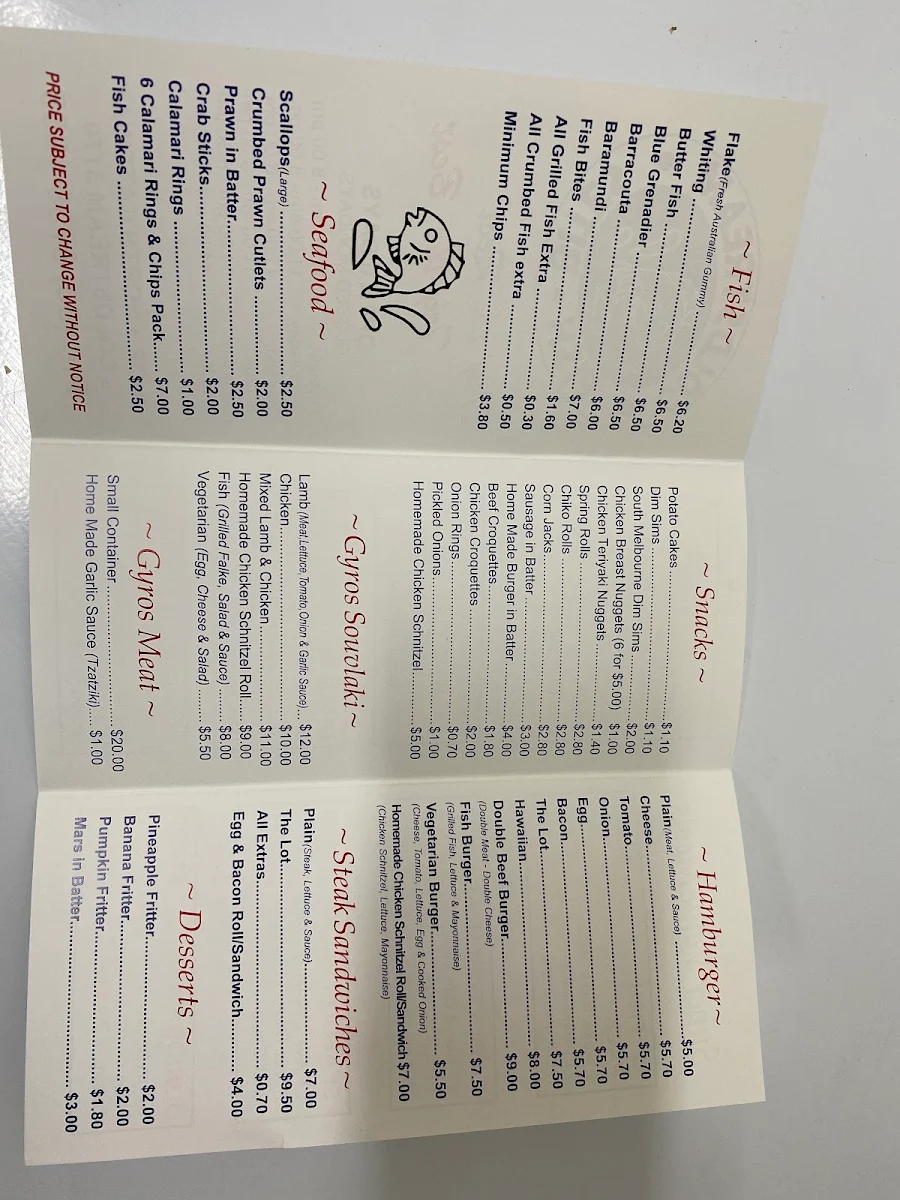 ~ Fish ~
Flake(Fresh Australian Gummy) .......... $6.20
Whiting .......... $6.50
Butter Fish .......... $6.50
Blue Grenadier .......... $6.50
Barracouta .......... $6.00
Baramundi .......... $7.00
Fish Bites .......... $1.60
All Grilled Fish Extra .......... $0.30
All Crumbed Fish extra .......... $0.50
Minimum Chips .......... $3.80
~ Seafood ~
Scallops(Large) .......... $2.50
Crumbed Prawn Cutlets .......... $2.00
Prawn in Batter .......... $2.50
Crab Sticks .......... $2.00
Calamari Rings .......... $1.00
6 Calamari Rings & Chips Pack...... $7.00
Fish Cakes .......... $2.50
PRICE SUBJECT TO CHANGE WITHOUT NOTICE
~ Snacks ~
Potato Cakes .......... $1.10
Dim Sims .......... $1.10
South Melbourne Dim Sims .......... $2.00
Chicken Breast Nuggets (6 for $5.00) $1.00
Chicken Teriyaki Nuggets .......... $1.40
Spring Rolls .......... $2.80
Chiko Rolls .......... $2.80
Corn Jacks .......... $2.80
Sausage in Batter .......... $3.00
Home Made Burger in Batter .......... $4.00
Beef Croquettes .......... $1.80
Chicken Croquettes .......... $2.00
Onion Rings .......... $0.70
Pickled Onions .......... $1.00
Homemade Chicken Schnitzel .......... $5.00
~Gyros Souvlaki~
Lamb (Meat,Lettuce,Tomato,Onion & Garlic Sauce)... $12.00
Chicken .......... $10.00
Mixed Lamb & Chicken .......... $11.00
Homemade Chicken Schnitzel Roll..... $9.00
Fish (Grilled Falke, Salad & Sauce) ....... $8.00
Vegetarian (Egg, Cheese & Salad) ....... $5.50
~ Gyros Meat ~
Small Container .......... $20.00
Home Made Garlic Sauce (Tzatziki).... $1.00
~ Hamburger~
Plain(Meat, Lettuce & Sauce) .......... $5.00
Cheese .......... $5.70
Tomato .......... $5.70
Onion .......... $5.70
Egg .......... $5.70
Bacon .......... $5.70
The Lot .......... $7.50
Hawaiian .......... $8.00
Double Beef Burger .......... $9.00
(Double Meat - Double Cheese)
Fish Burger .......... $7.50
(Grilled Fish, Lettuce & Mayonnaise)
Vegetarian Burger .......... $5.50
(Cheese, Tomato, Lettuce, Egg & Cooked Onion)
Homemade Chicken Schnitzel Roll/Sandwich $7.00
(Chicken Schnitzel, Lettuce, Mayonnaise)
~ Steak Sandwiches ~
Plain(Steak, Lettuce & Sauce) .......... $7.00
The Lot .......... $9.50
All Extras .......... $0.70
Egg & Bacon Roll/Sandwich ..... $4.00
~ Desserts ~
Pineapple Fritter .......... $2.00
Banana Fritter .......... $2.00
Pumpkin Fritter .......... $1.80
Mars in Batter .......... $3.00